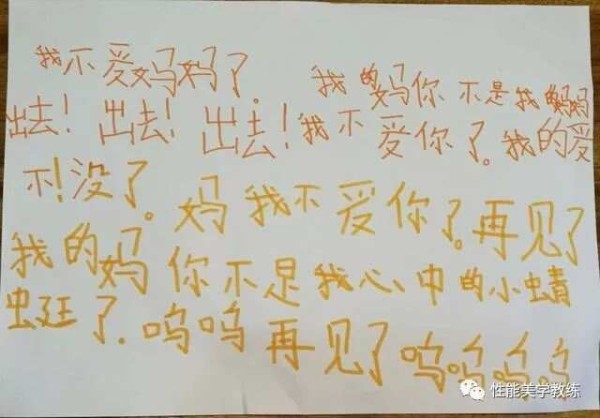 我不爱妈妈了。
我的妈你不是我的妈妈
出去！出去！出去！我不爱你了。我的爱
不！没了。妈我不爱你了。再见了
我的妈你不是我心中的小蜻
虫廷了．呜呜再见了呜呜呜呜
性能美学教练